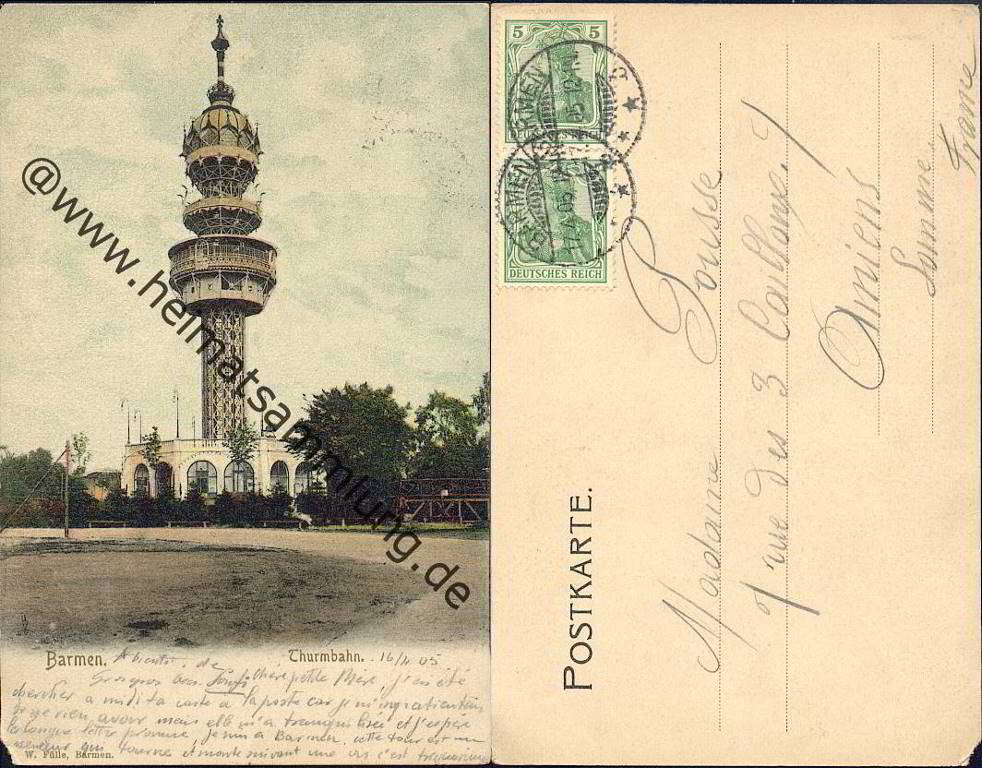 @www.heimatsammlung.de
Barmen.
Thurmbahn.
16/4 05
A bientôt, de
Gros gros bec. Chère petite Mère, j'ai été
chercher a midi ta carte à la poste car je m'impatientais
de ne rien avoir mais elle m'a tranquilisée et j'espère
la longue lettre promise, je suis à Barmen, cette tour est un
qui tourne et monte suivant une vis c'est
W. Fülle, Barmen.
5 5
DEUTSCHES REICH
BARMEN
DEUTSCHES REICH
BARMEN
17.4.05
POSTKARTE.
Madame Pousse
7 rue des 3 Cailloux 7
Amiens
Somme.
France